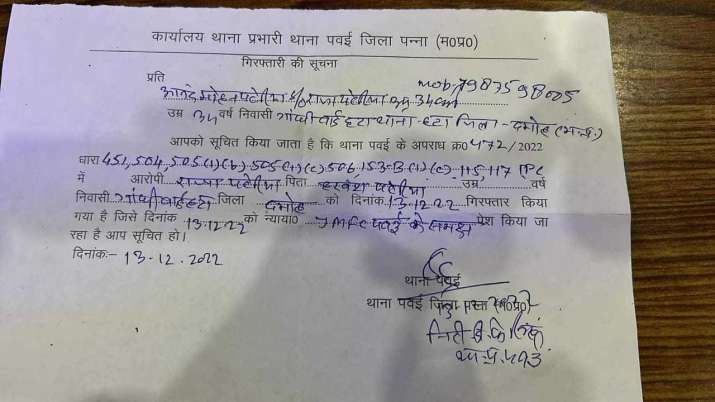 कार्यालय थाना प्रभारी थाना पवई जिला पन्ना (म0प्र0)
गिरफ्तारी की सूचना
प्रति
mob 7987598005
आनंद मोहन पटेरिया s/o राजा पटेरिया उम्र 34 साल
उम्र 34 वर्ष निवासी गांधी वार्ड हटा थाना - हटा जिला - दमोह (म.प्र.)
आपको सूचित किया जाता है कि थाना पवई के अपराध क्र0 472/2022
धारा 451, 504, 505(1)(b) 505(1)(c) 506 153-B(1)(c) 115, 117 IPC
में आरोपी राजा पटेरिया पिता पटेरिया उम्र वर्ष
निवासी गांधी वार्ड हटा जिला दमोह को दिनांक 13.12.22 गिरफ्तार किया
गया है जिसे दिनांक 13.12.22 को न्याया0 JMFC पवई के समक्ष पेश किया जा
रहा है आप सूचित हो।
दिनांक:- 13-12.2022
थाना पवई
थाना पवई जिला पन्ना (म0प्र0)